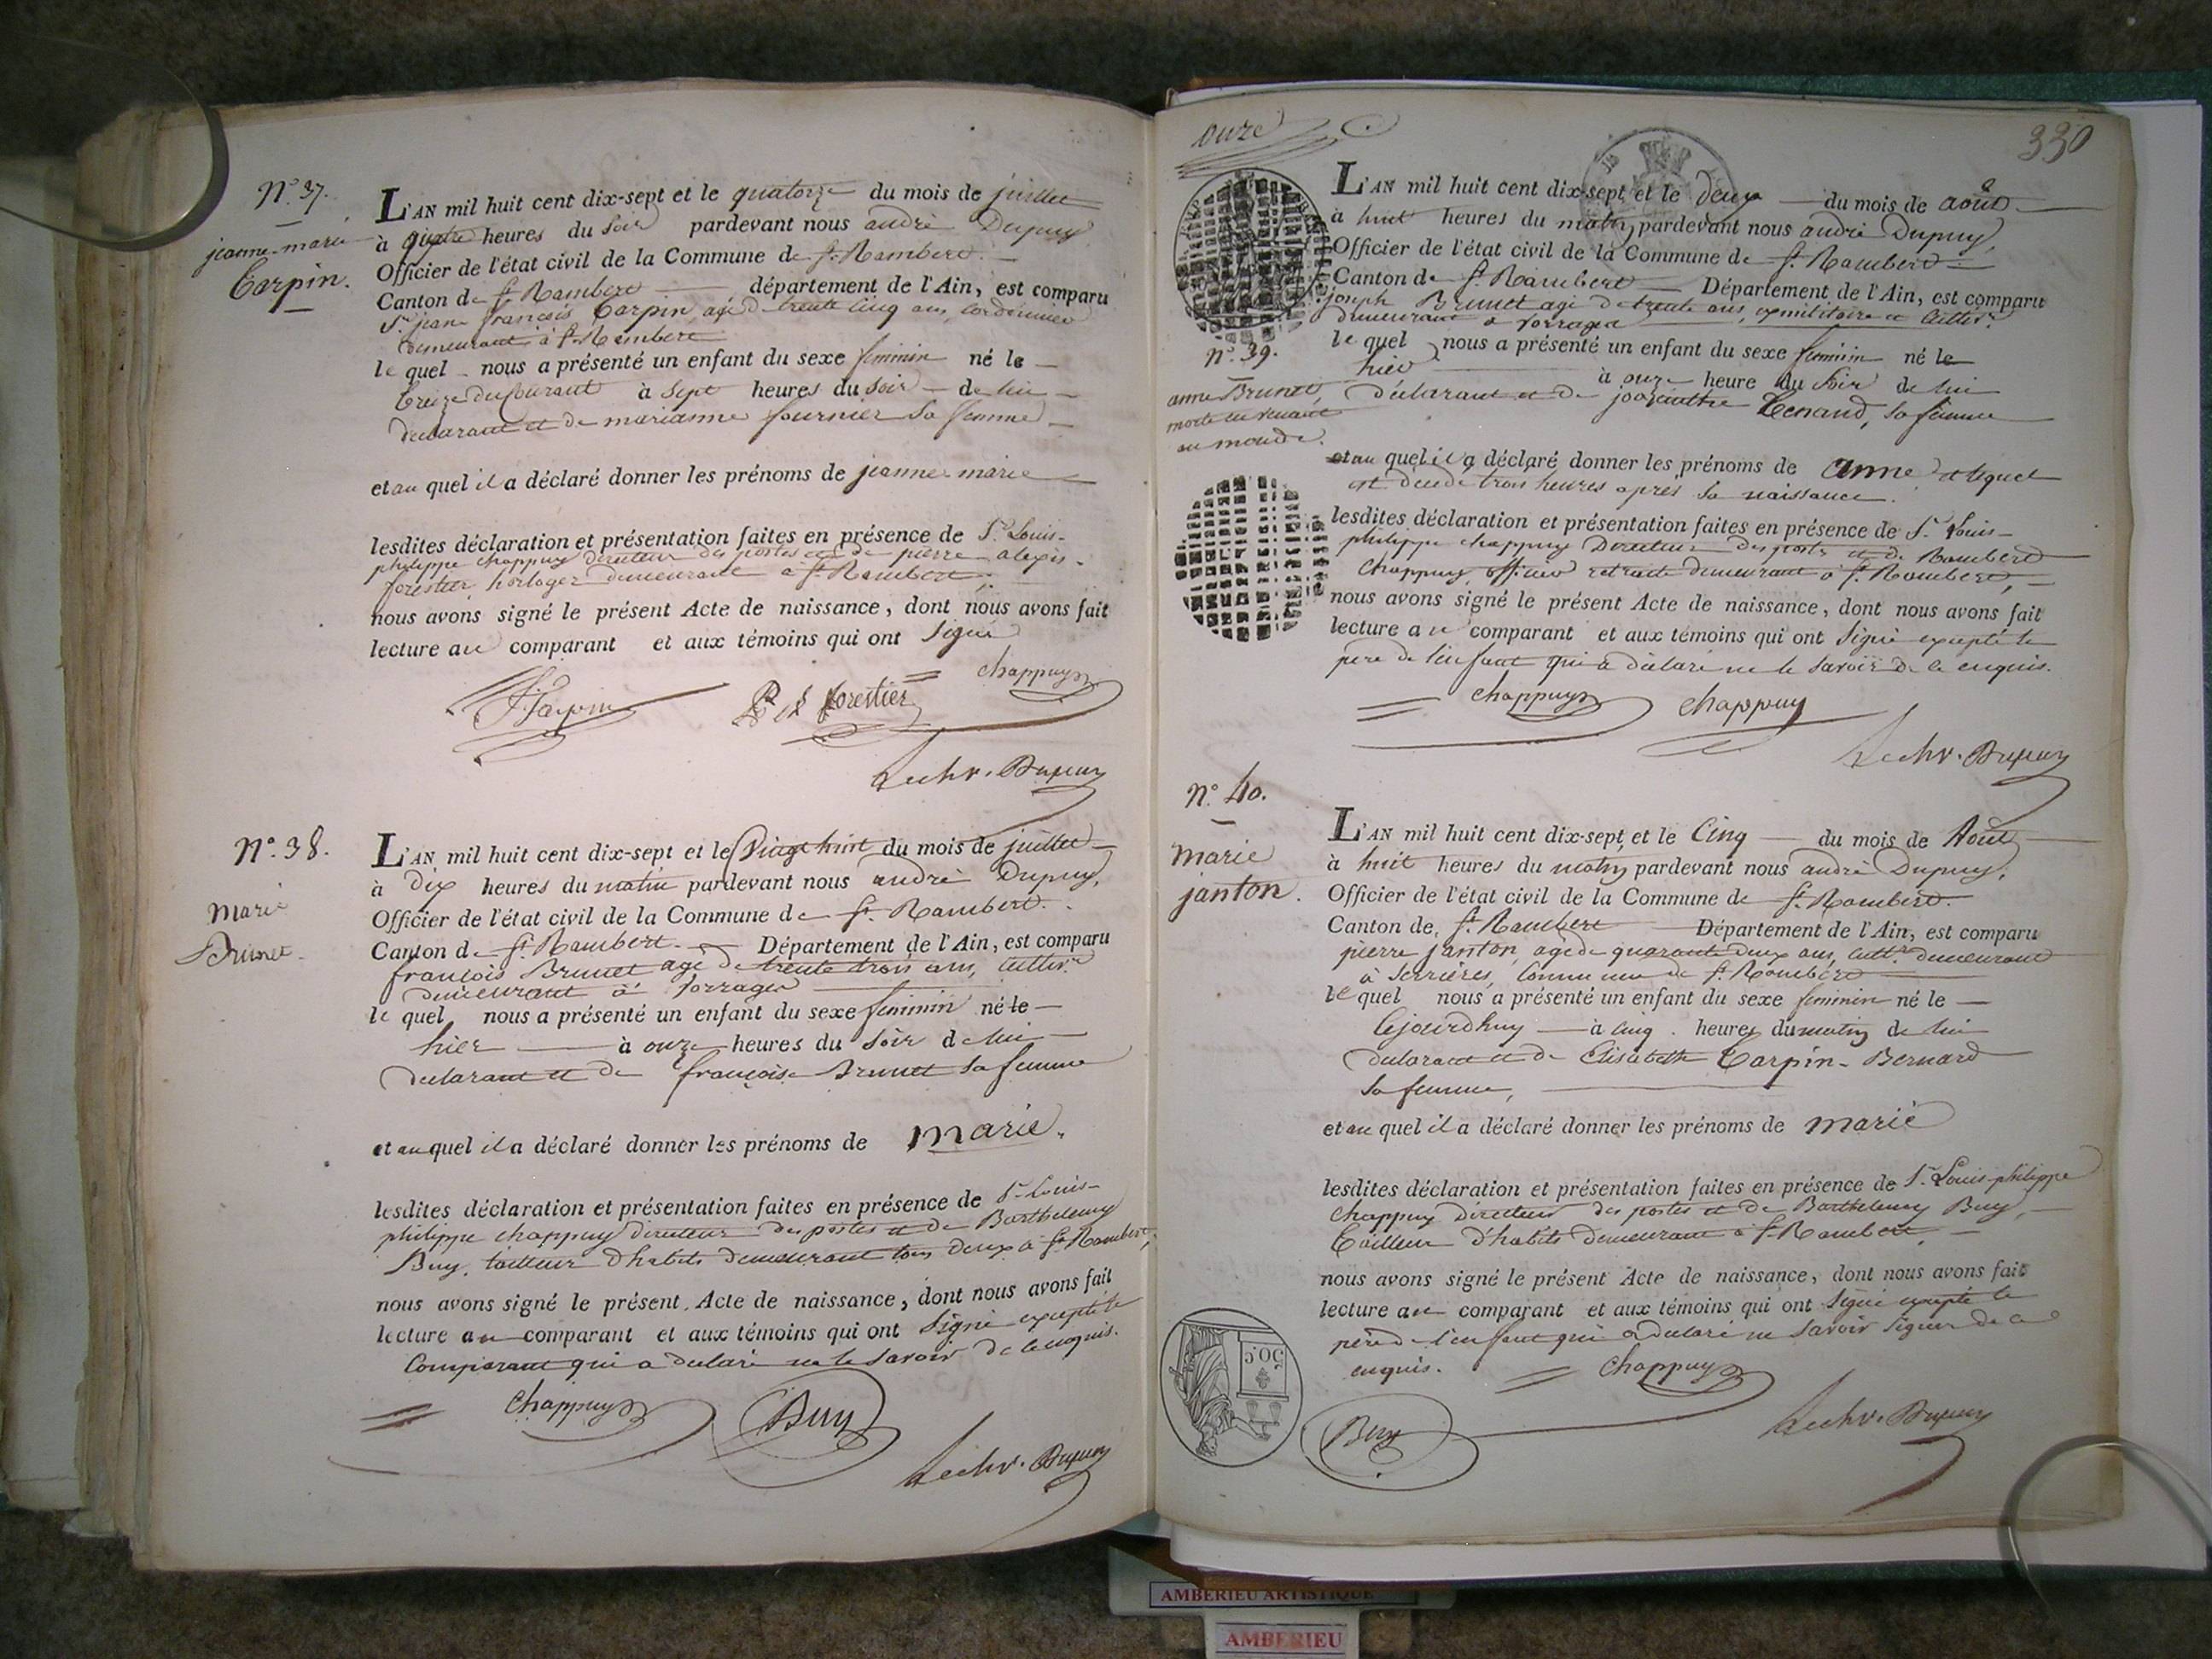 N.° 37.
jeanne-marie
Carpin.
L'AN mil huit cent dix-sept et le quatorze du mois de juillet
à quatre heures du soir pardevant nous andré Dupuy
Officier de l'état civil de la Commune de St. Rambert.
Canton de St. Rambert département de l'Ain, est comparu
Sr. jean françois Carpin, agé de trente cinq ans, cordonnier
demeurant à St. Rambert
le quel nous a présenté un enfant du sexe feminin né le
treize du courant à sept heures du soir de lui
declarant et de marianne fournier sa femme
et au quel il a déclaré donner les prénoms de jeanne marie
lesdites déclaration et présentation faites en présence de Sr. Louis-
philippe chappuy directeur des postes et de pierre alexis
forestier, horloger demeurant à St. Rambert,
nous avons signé le présent Acte de naissance, dont nous avons fait
lecture au comparant et aux témoins qui ont signé
chappuy
forestier
Dupuy
N.° 38.
Marie
Brunet.
L'AN mil huit cent dix-sept et le Vingt huit du mois de juillet
à Dix heures du matin pardevant nous andré Dupuy,
Officier de l'état civil de la Commune de St. Rambert.
Canton de St. Rambert. Département de l'Ain, est comparu
françois Brunet agé de trente trois ans, cultivr.
demeurant à Vorrages
le quel nous a présenté un enfant du sexe feminin né le
hier à onze heures du soir de lui
declarant et de françoise Brunet sa femme
et au quel il a déclaré donner les prénoms de marie.
lesdites déclaration et présentation faites en présence de Sr. Louis-
philippe chappuy directeur des postes et de Barthelemy
Buy, tailleur d'habits demeurant tous deux à St. Rambert,
nous avons signé le présent Acte de naissance, dont nous avons fait
lecture au comparant et aux témoins qui ont signé excepté le
comparant qui a declaré ne le savoir de ce enquis.
chappuy
Buy
Dupuy
onze
330
N.° 39.
anne Brunet,
morte en venant
au monde.
L'AN mil huit cent dix-sept et le deux du mois de août
à huit heures du matin pardevant nous andré Dupuy,
Officier de l'état civil de la Commune de St. Rambert
Canton de St. Rambert Département de l'Ain, est comparu
joseph Brunet agé de trente ans, exmilitaire et cultivr.
demeurant à Vorrages
le quel nous a présenté un enfant du sexe feminin né le
hier à onze heure du soir de lui
déclarant et de Tenand, sa femme
et au quel il a déclaré donner les prénoms de anne et lequel
est décédé trois heures après sa naissance.
lesdites déclaration et présentation faites en présence de Sr. Louis-
philippe chappuy Directeur des postes et de Rambert
Chappuy, officier retraité demeurant à St. Rambert,
nous avons signé le présent Acte de naissance, dont nous avons fait
lecture au comparant et aux témoins qui ont signé excepté le
père de l'enfant qui a déclaré ne le savoir de ce enquis.
chappuy
chappuy
Dupuy
N.° 40.
Marie
janton.
L'AN mil huit cent dix-sept et le Cinq du mois de Août
à huit heures du matin pardevant nous andré Dupuy,
Officier de l'état civil de la Commune de St. Rambert.
Canton de St. Rambert Département de l'Ain, est comparu
pierre janton, agé de quarante deux ans, cultr. demeurant
à Serrières, Commune de St. Rambert
le quel nous a présenté un enfant du sexe feminin né le
cejourdhuy à cinq heures du matin de lui
declarant et de Elisabeth Carpin-Bernard
sa femme,
et au quel il a déclaré donner les prénoms de marie
lesdites déclaration et présentation faites en présence de Sr. Louis-philippe
chappuy Directeur des postes et de Barthelemy Buy,
tailleur d'habits demeurant à St. Rambert,
nous avons signé le présent Acte de naissance, dont nous avons fait
lecture au comparant et aux témoins qui ont signé excepté le
père de l'enfant qui a declaré ne savoir signer de ce
enquis.
chappuy
50.c
Buy
Dupuy
AMBERIEU ARTISTIQUE
AMBERIEU